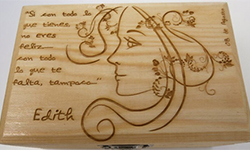 "Si con todo lo
que tienes
no eres
feliz...
con todo
lo que te
falta, tampoco"
Edith